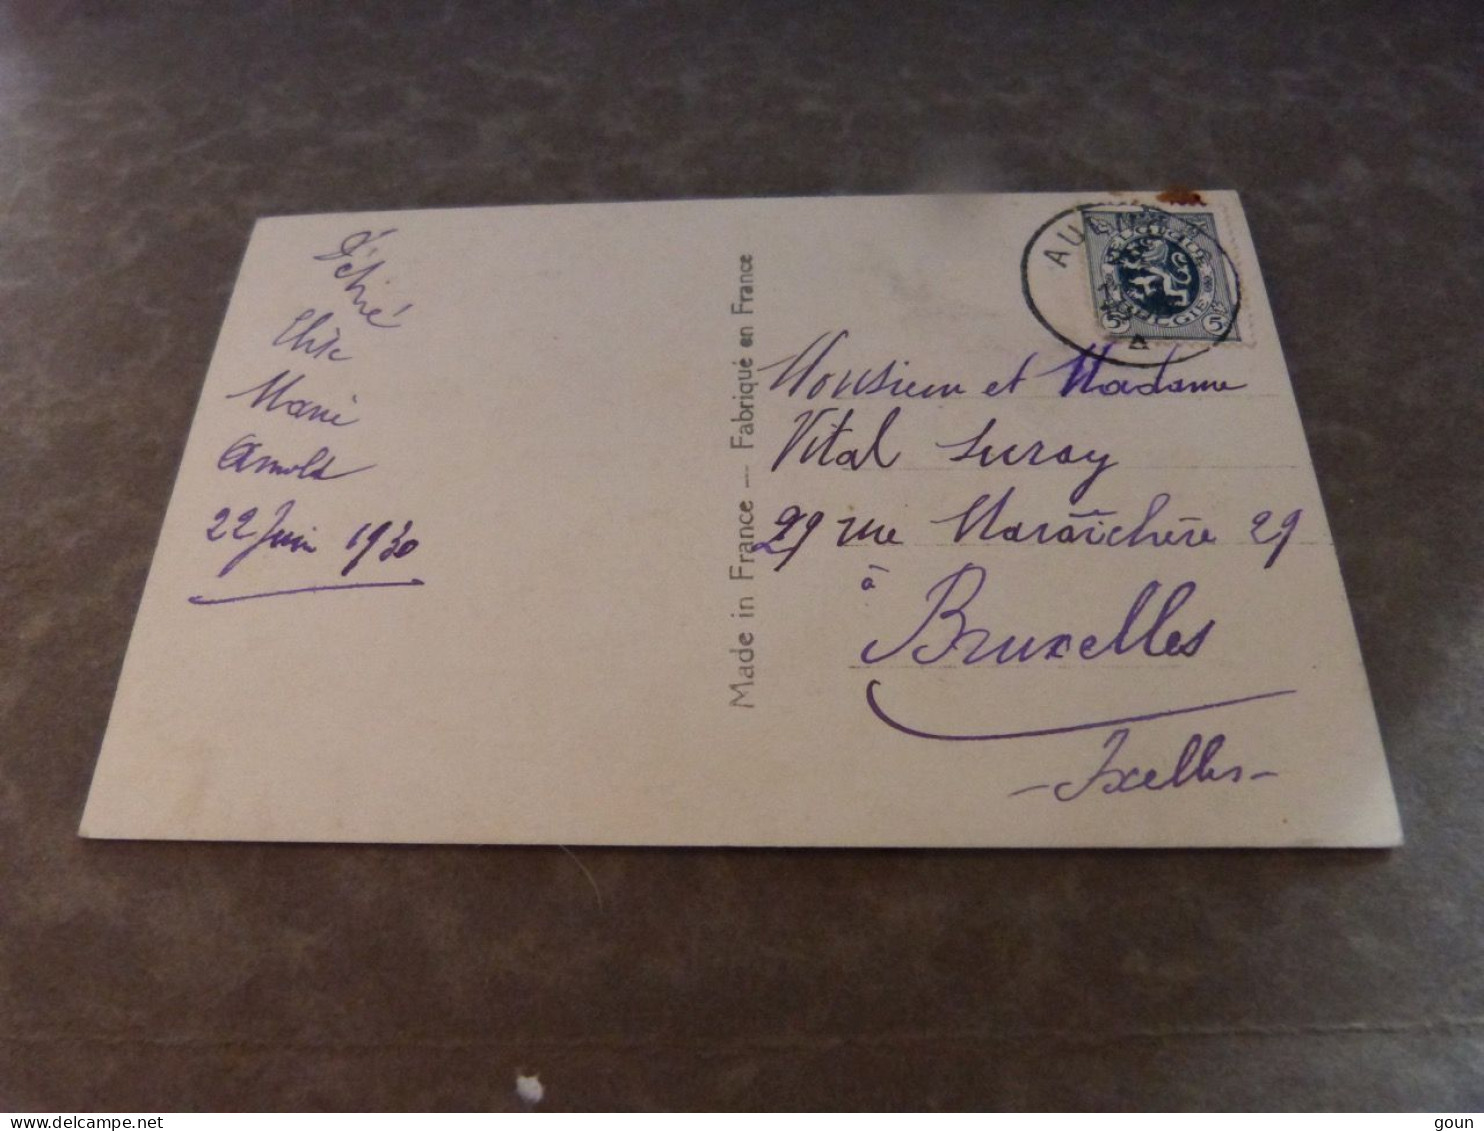 Désiré
Marie
Arnold
22 Juin 1930
Made in France -- Fabriqué en France
BELGIQUE
BELGIË
5 5
Monsieur et Madame
Vital Suray
29 rue Maraîchère 29
à
Bruxelles
- Ixelles -
www.delcampe.net
goun